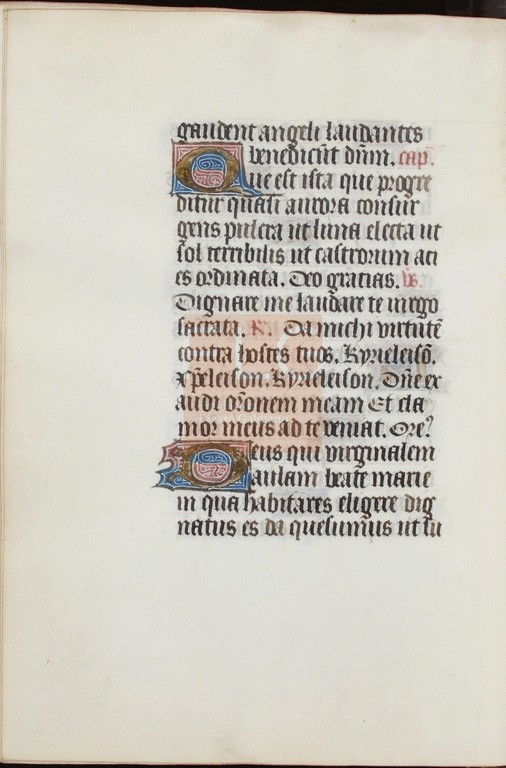 gaudent angeli laudantes
benedicūt dn̄m. cap̄.
Que est ista que progre
ditur quasi aurora consur
gens pulcra ut luna electa ut
sol terribilis ut castrorum aci
es ordinata. Deo gratias. vs.
Dignare me laudare te uirgo
sacrata. R. Da michi virtutē
contra hostes tuos. Kyrieleisō.
xp̄eleison. Kyrieleison. Dn̄e ex
audi or̄onem meam Et cla
mor meus ad te veniat. Ore᷒
Deus qui virginalem
aulam beate marie
in qua habitares eligere dig
natus es da quesumus ut su